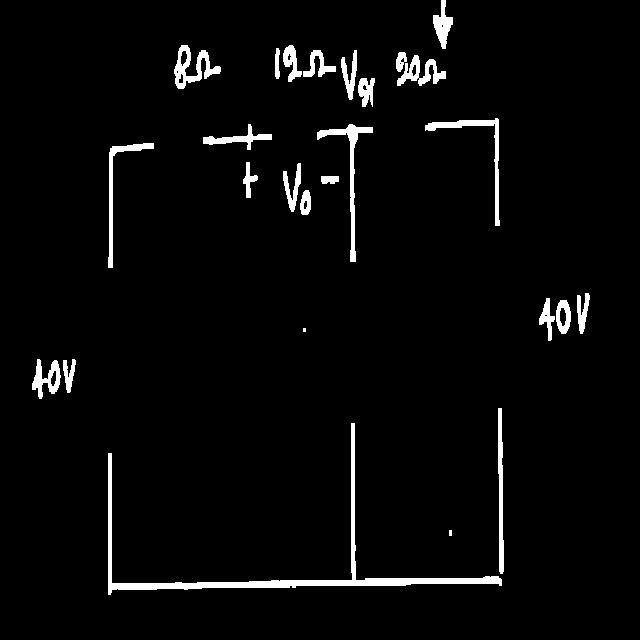 8Ω 12Ω V 20Ω
+ V₀ −
40V
40V